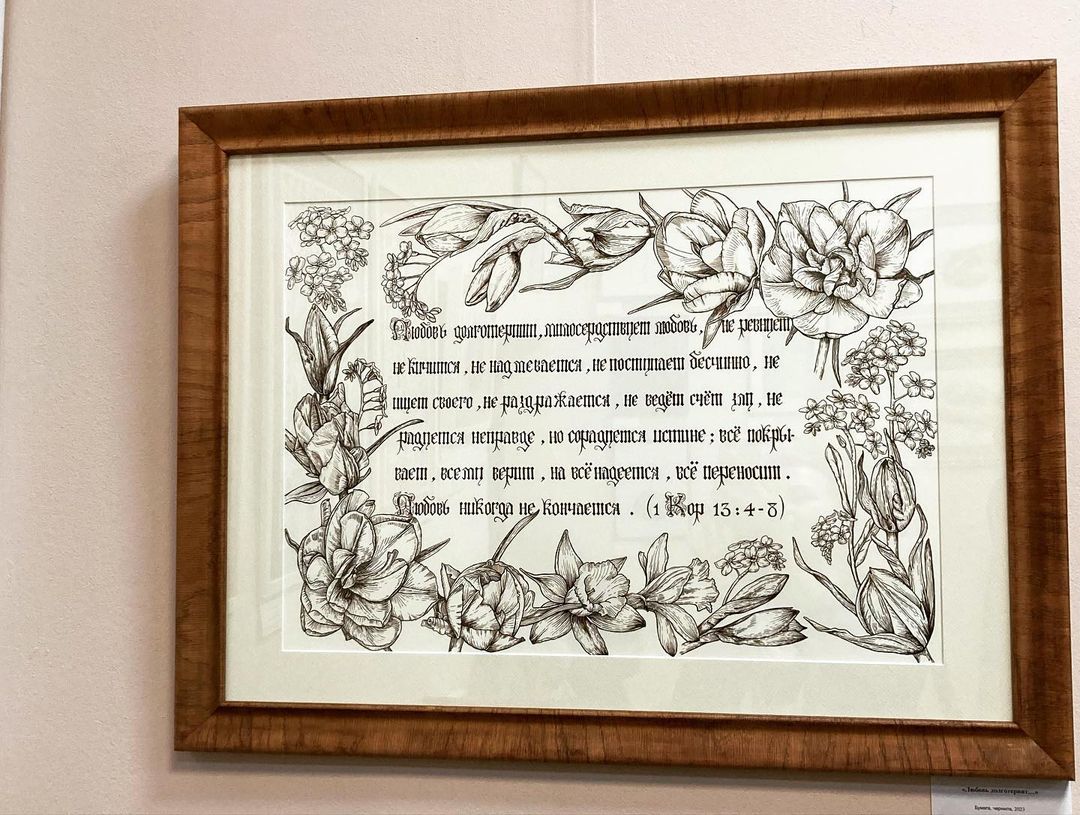 Любовь долготерпит, милосердствует любовь, не ревнует
не кичится, не надмевается, не поступает бесчинно, не
ищет своего, не раздражается, не ведёт счёт зла, не
радуется неправде, но сорадуется истине; всё покры-
вает, всему верит, на всё надеется, всё переносит.
Любовь никогда не кончается. (1 Кор 13:4-8)
«Любовь долготерпит...»
Бумага, чернила, 2023